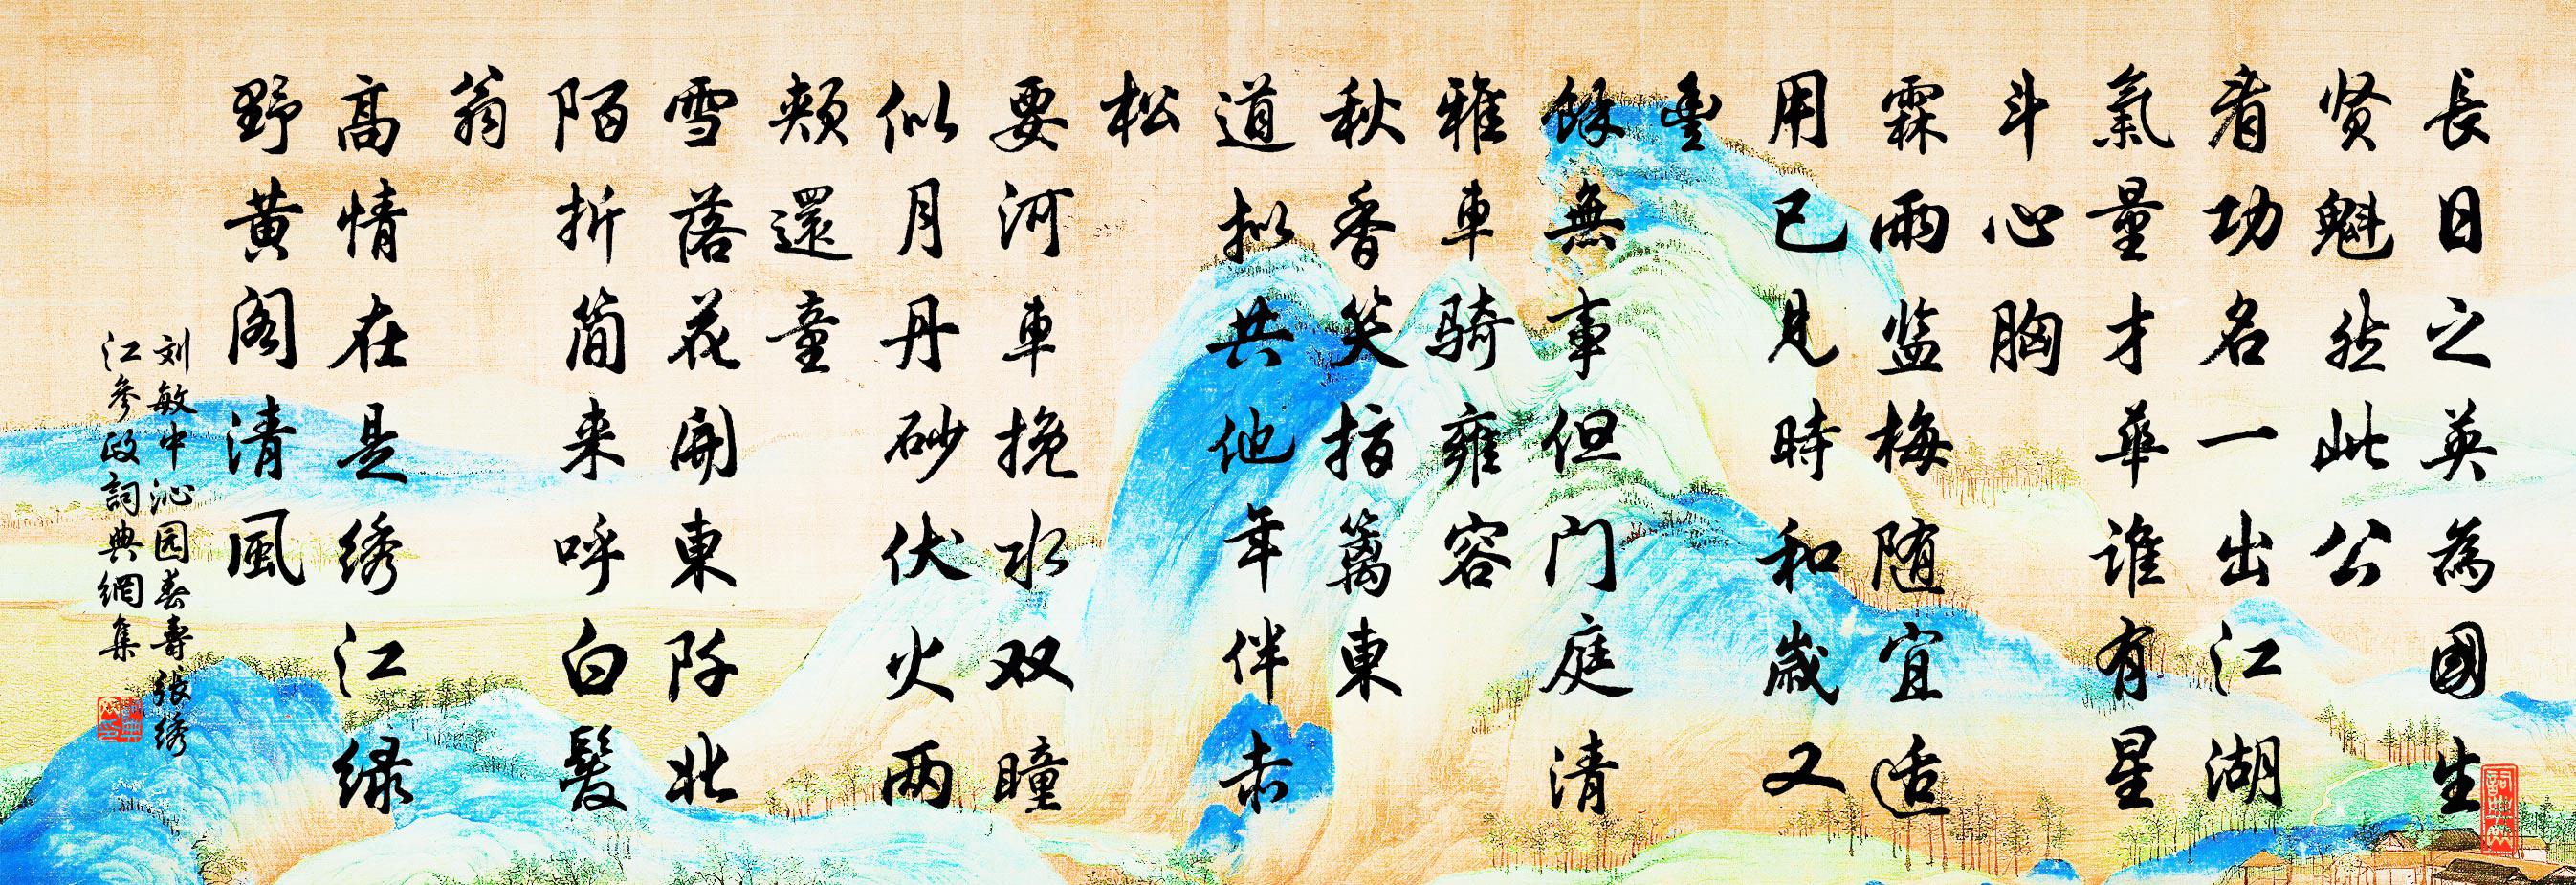 長日之英為國生
贤魁然此公
看功名一出江湖
氣量才華誰有星
斗心胸
霖雨监梅随宜适
用已見時和歲又
豊
餘無事但门庭清
雅車骑雍容
秋香笑指籬東
道拟共他年伴赤
松
要河車挽水双瞳
似月丹砂伏火两
頰還童
雪落花開東阡北
陌折简来呼白髮
翁
高情在是绣江緑
野黄阁清風
刘敏中沁园春壽张绣
江參政詞典網集
詞典网